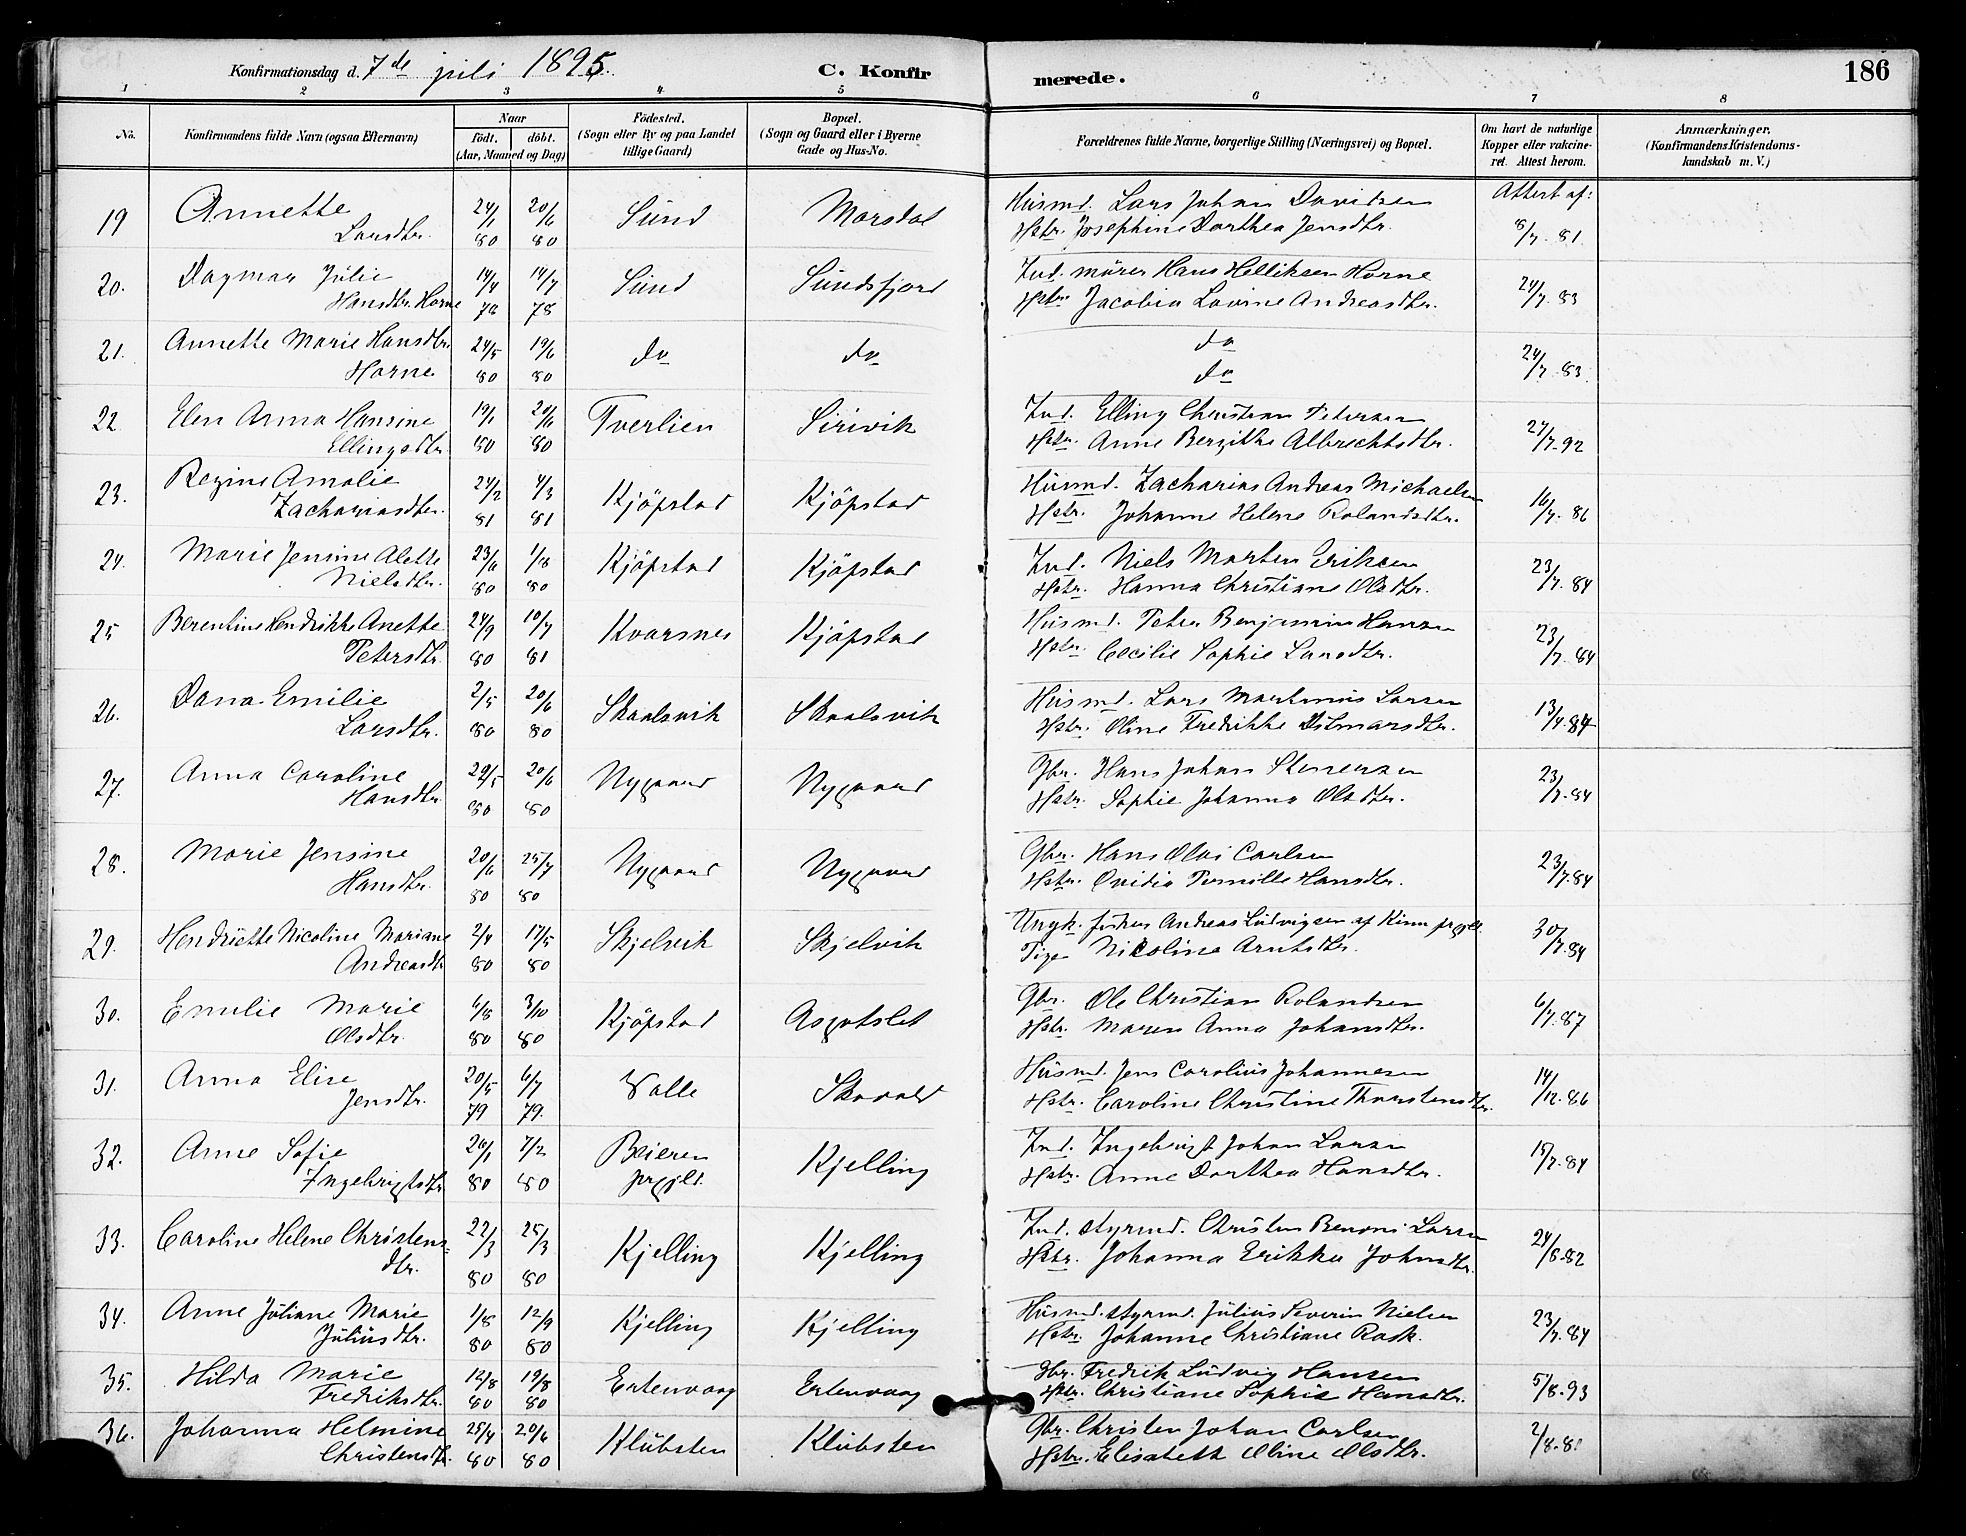 Konfirmationsdag d. 7de juli 1895. C. Konfirmerede. 186
1 2 3 4 5 6 7 8
No. Konfirmandens fulde Navn (ogsaa Efternavn) Naar födt. döbt. (Aar, Maaned og Dag) Födested. (Sogn eller By og paa Landet tillige Gaard) Bopæl. (Sogn og Gaard eller i Byerne Gade og Hus-No. Forældrenes fulde Navne, borgerlige Stilling (Næringsvei) og Bopæl. Om havt de naturlige Kopper eller vakcineret. Attest herom. Anmærkninger. (Konfirmandens Kristendomskundskab m. V.)
19 Annette 24/1 20/6 Sund Morsdal Husmd. Lars Johan Davidsen Attest af:
Larsdtr. 80 80 Hstr. Josephine Dorthea Jensdtr. 8/7-81
20. Dagmar Julie 14/4 14/7 Sund Sundsfjord Ind. mürer Hans Helliksen Horne
Hansdtr. Horne 78 78 Hstr. Jacobia Lovine Andreasdtr. 24/7-83
21. Annette Marie Hansdtr. 24/5 19/6 do do do
Horne 80 80 do 24/7-83
22 Elen Anna Hansine 19/1 20/6 Tverlien Sirivik Ind. Elling Christian Petersen
Ellingsdtr. 80 80 Hstr. Anne Bergitha Albrechtsdtr. 27/7-92
23. Regine Amalie 24/2 4/3 Kjöpstad Kjöpstad Husmd. Zacharias Andreas Michaelsen
Zachariasdtr. 81 81 Hstr. Johanne Helene Rolandsdtr. 16/7-86
24. Marie Jensine Alette 23/6 1/8 Kjöpstad Kjöpstad Ind. Niels Morten Eriksen
Nielsdtr. 80 80 Hstr. Hanna Christiane Olsdtr. 23/7-84
25 Berentine Hendrikke Anette 24/9 10/7 Kvarsnes Kjöpstad Husmd. Peter Benjamin Hansen
Petersdtr. 80 81 Hstr. Cecilie Sophie Larsdtr. 23/7-84
26. Dana Emilie 2/5 20/6 Skaalsvik Skaalsvik Husmd. Lars Martinus Larsen
Larsdtr. 80 80 Hstr. Oline Fredrikke Ditmarsdtr. 13/7-84
27. Anna Caroline 22/5 20/6 Nygaard Nygaard Gbr. Hans Johan Steensen
Hansdtr. 80 80 Hstr. Sophie Johanna Olsdtr. 23/7-84
28. Marie Jensine 20/6 25/7 Nygaard Nygaard Gbr. Hans Olai Carlsen
Hansdtr. 80 80 Hstr. Ovidia Pernille Hansdtr. 23/7-84
29. Hendriette Nicoline Mariane 2/4 17/5 Skjelvik Skjelvik Ungk. fisker Andreas Ludvigsen af Kinn prgjld.
Andreasdtr 80 80 Pige Nicoline Arntsdtr. 30/7-84
30. Emilie Marie 6/8 3/10 Kjöpstad Asgotslet Gbr. Ole Christian Rolandsen
Olsdtr. 80 80 Hstr. Maren Anna Johansdtr. 6/7-87
31. Anna Elise 20/5 6/7 Valle Skavold Husmd. Jens Carolius Johannesen
Jensdtr. 79 79. Hstr. Caroline Christine Thorstensdtr. 14/12-86
32. Anne Sofie 26/1 7/2 Beieren Kjelling Ind. Ingebrigt Johan Larsen
Ingebrigtsdtr 80 80 prgjld. Hstr. Anne Dorthea Hansdtr. 15/7-84
33. Caroline Helene Christens- 22/3 25/3 Kjelling Kjelling Ind. styrmd. Christen Benoni Larsen
dtr. 80 80 Hstr. Johanna Erikka Johnsdtr. 24/8-82
34. Anne Juliane Marie 1/8 12/9 Kjelling Kjelling Husmd. styrmd. Julius Severin Nielsen
Juliusdtr. 80 80 Hstr. Johanne Christiane Rask. 23/7-84
35. Hilda Marie 12/8 19/8 Ertenvaag Ertenvaag Gbr. Fredrik Ludvig Hansen
Fredriksdtr. 80 80 Hstr. Christiane Sophie Hansdtr. 5/8-93
36. Johanna Helmine 25/4 20/6 Klubsten Klubsten Gbr. Christen Johan Carlsen
Christensdtr. 80 80 Hstr. Elisabeth Oline Olsdtr. 2/8-81